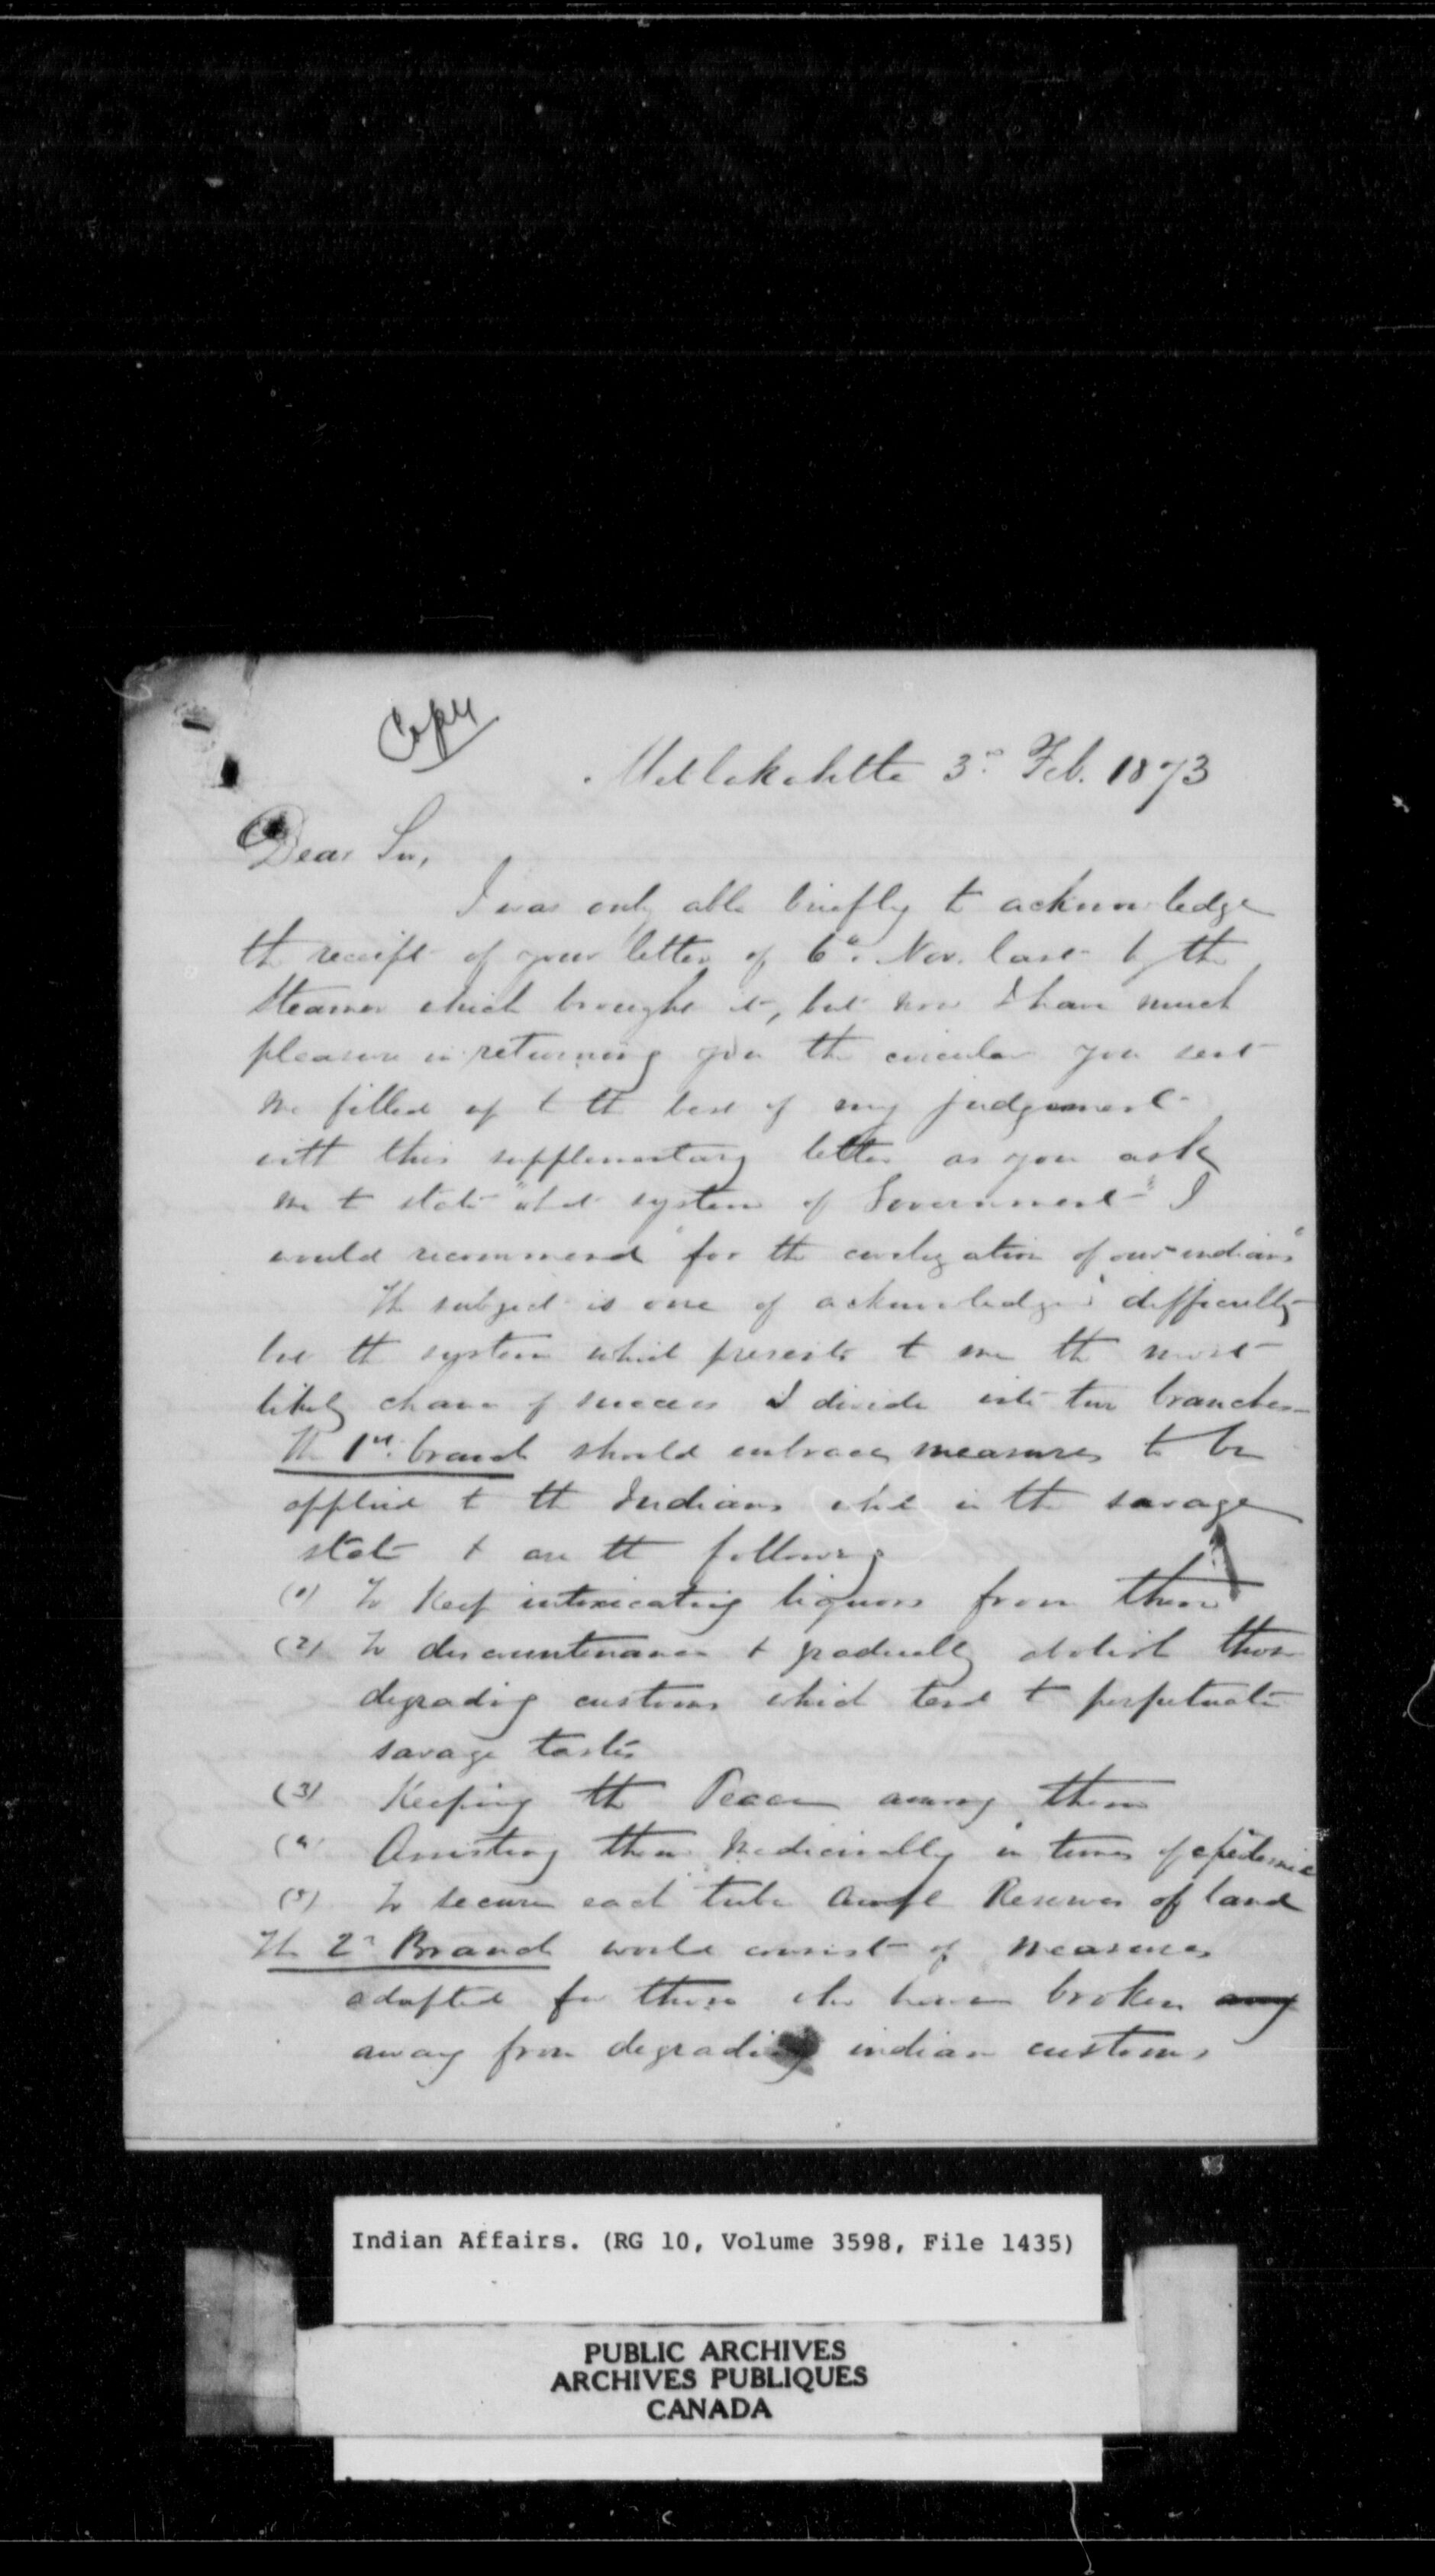 Copy
Metlakahtla 3d Feb. 1873
Dear Sir,
I was only able briefly to acknowledge
the receipt of your letter of 6th Nov. last by the
Steamer which brought it, but now I have much
pleasure in returning you the circular you sent
me filled up to the best of my judgement
with this supplementary letter as you ask
me to state "what system of Government" I
would recommend "for the civilization of our indians"
The subject is one of acknowledged difficulty
but the system which presents to me the most
likely chance of success I divide into two branches
The 1st branch should embrace measures to be
applied to the Indians while in the savage
state & are the following
(1) To Keep intoxicating liquors from them
(2) To discountenance & gradually abolish those
degrading customs which tend to perpetuate
savage tastes
(3) Keeping the Peace among them
(4) Assisting them medicinally in times of epidemic
(5) To secure each tribe ample Reserves of land
The 2d Branch would consist of measures
adapted for those who have broken away
away from degrading indian customs
Indian Affairs. (RG 10, Volume 3598, File 1435)
PUBLIC ARCHIVES
ARCHIVES PUBLIQUES
CANADA